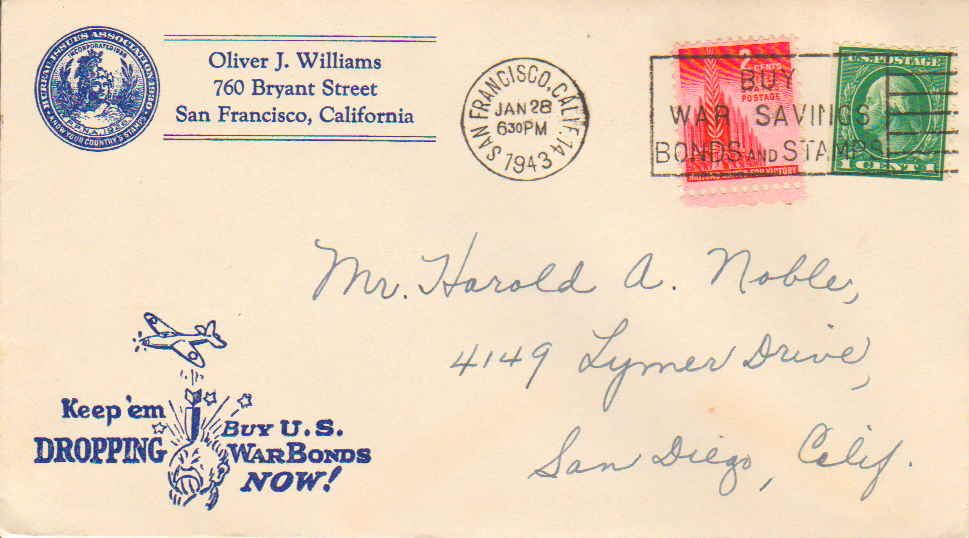 BUREAU ISSUES ASSOCIATION
INCORPORATED 1926
KNOW YOUR COUNTRY'S STAMPS
Oliver J. Williams
760 Bryant Street
San Francisco, California
SAN FRANCISCO, CALIF. 14
JAN 28
6 30 PM
1943
BUY
WAR SAVINGS
BONDS AND STAMPS
2
CENTS
POSTAGE
FOR VICTORY
U.S. POSTAGE
1 CENT 1
Mr. Harold A. Noble,
4149 Lymer Drive,
San Diego, Calif.
Keep 'em
DROPPING
BUY U.S.
WAR BONDS
NOW!